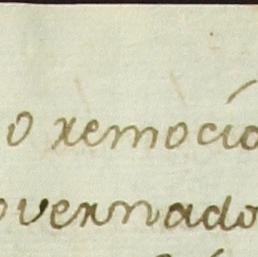 o remoció
overnado